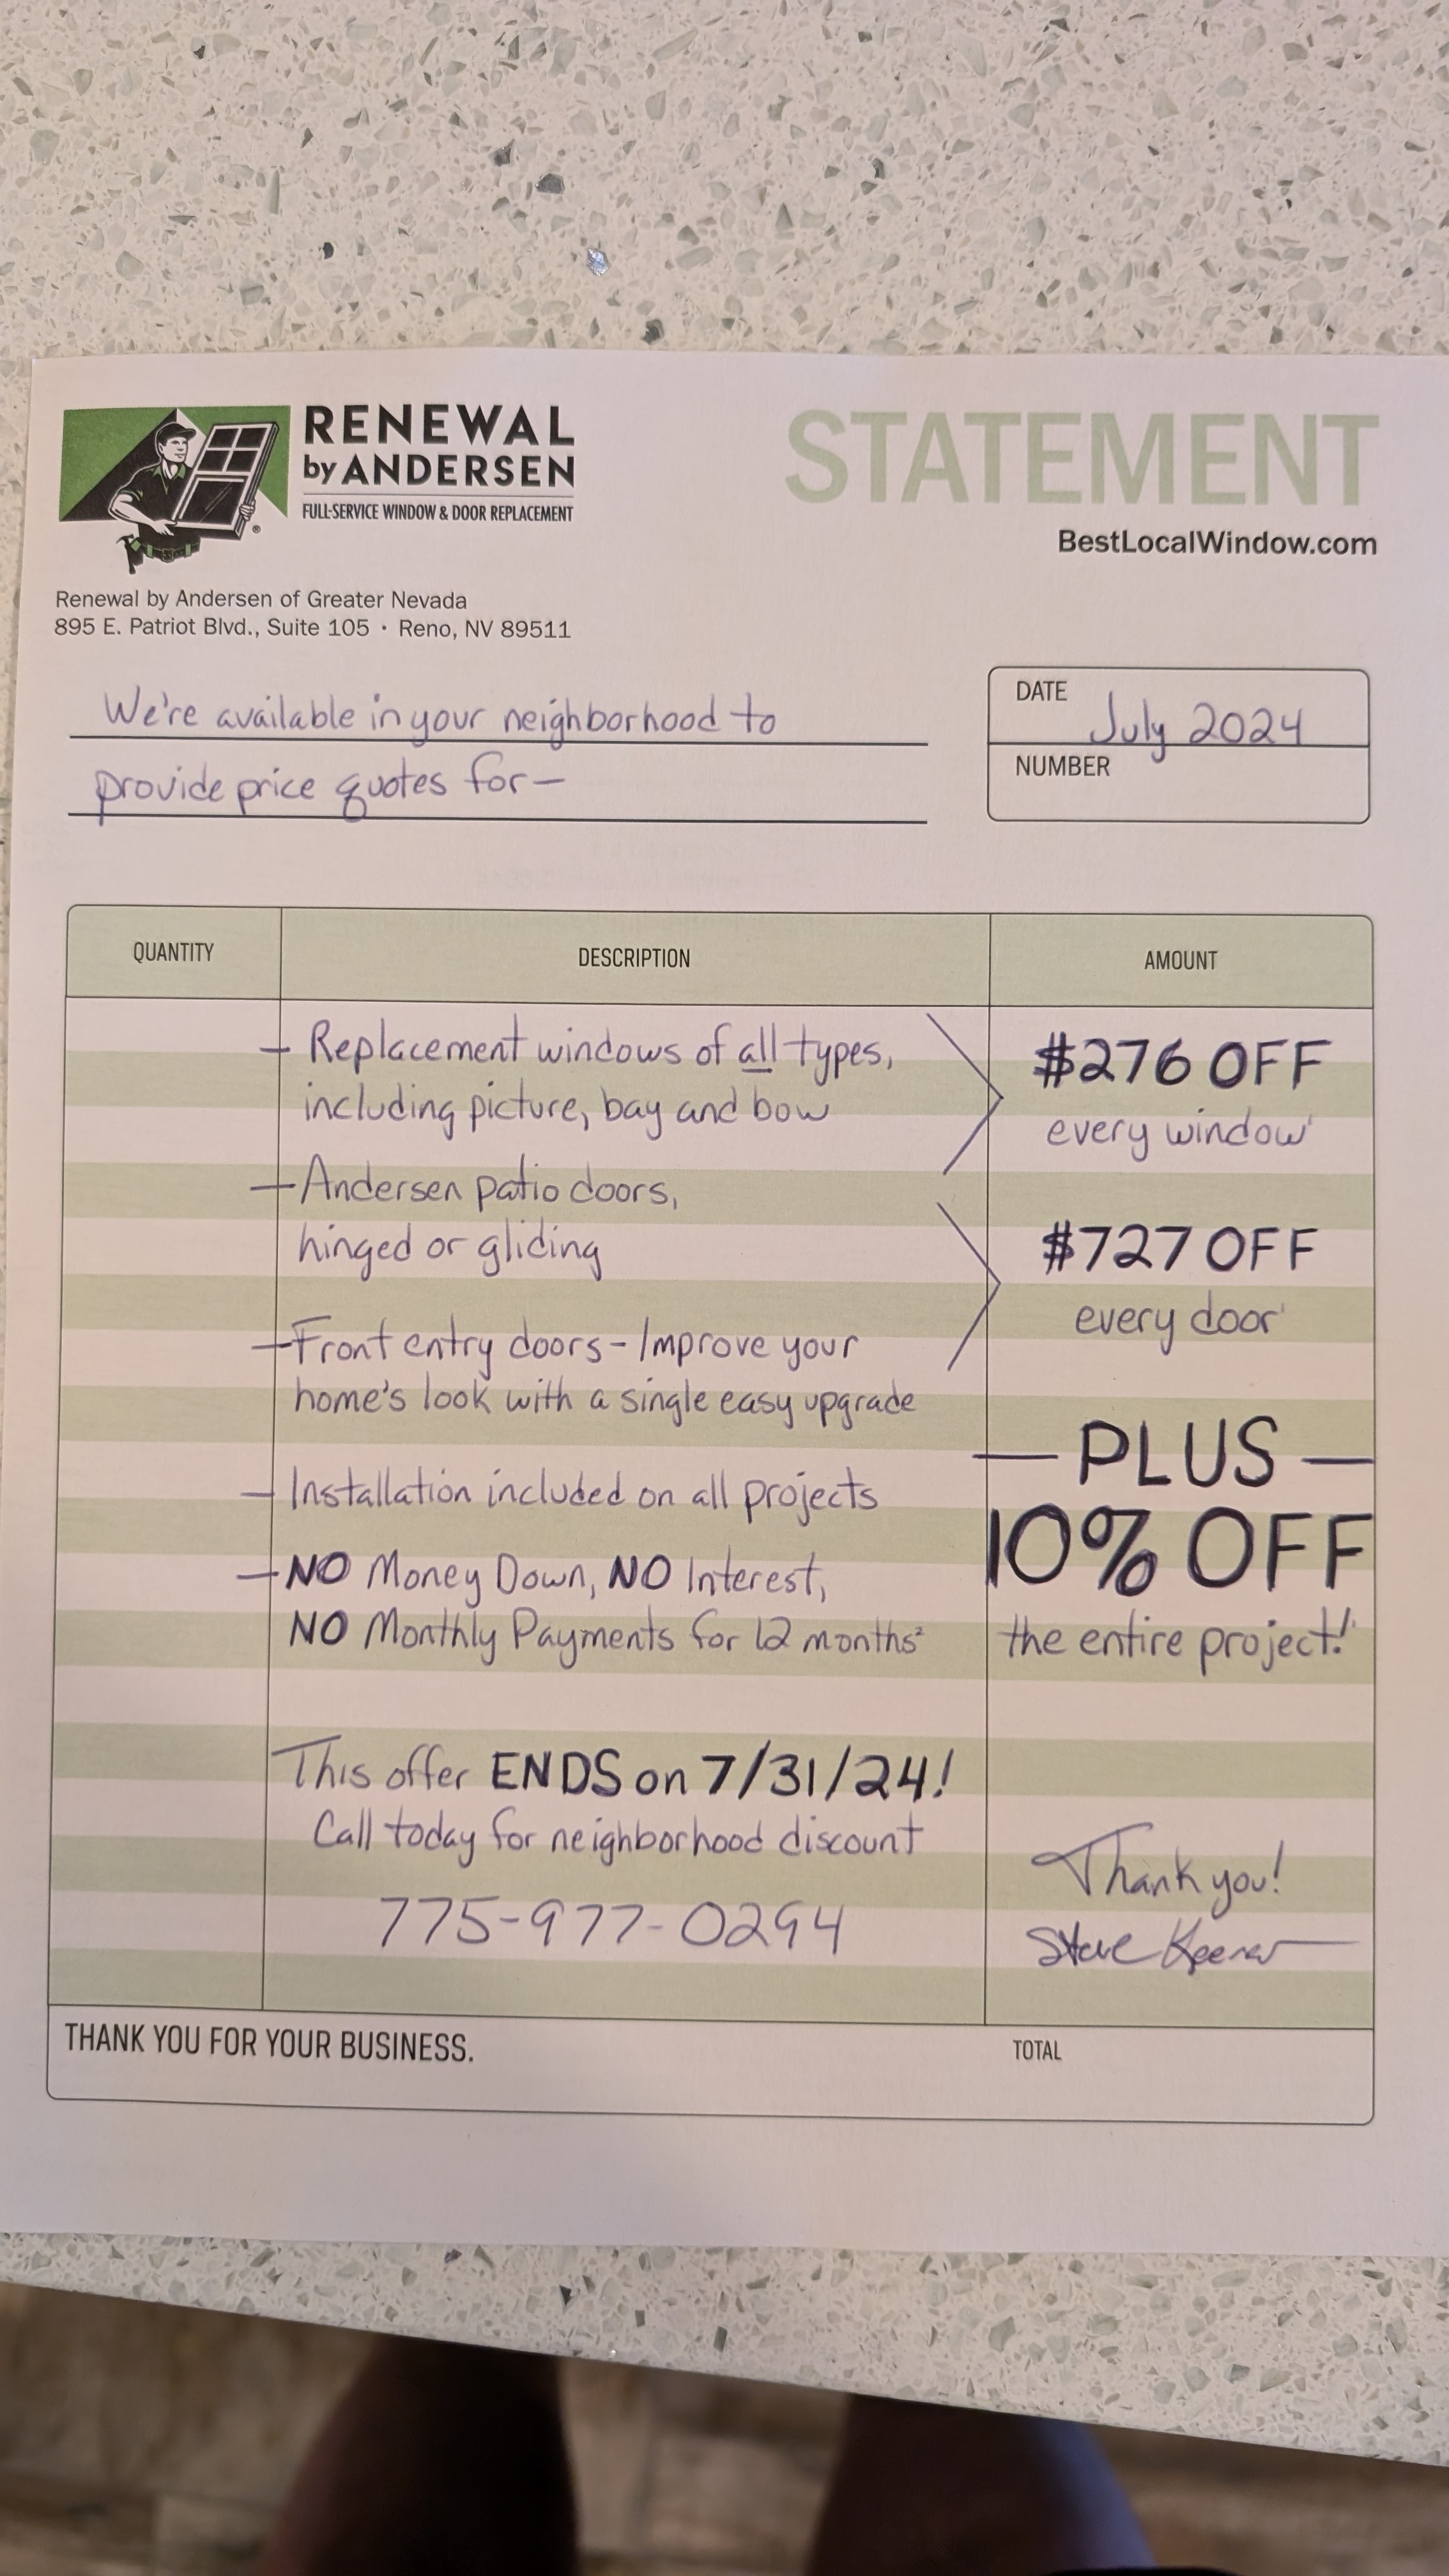 RENEWAL
by ANDERSEN
FULL-SERVICE WINDOW & DOOR REPLACEMENT
STATEMENT
BestLocalWindow.com
Renewal by Andersen of Greater Nevada
895 E. Patriot Blvd., Suite 105 • Reno, NV 89511
We're available in your neighborhood to
provide price quotes for—
DATE July 2024
NUMBER
QUANTITY DESCRIPTION AMOUNT
— Replacement windows of all types,
including picture, bay and bow
$276 OFF
every window¹
— Andersen patio doors,
hinged or gliding
$727 OFF
every door¹
— Front entry doors - Improve your
home's look with a single easy upgrade
— PLUS —
10% OFF
the entire project!¹
— Installation included on all projects
— NO Money Down, NO Interest,
NO Monthly Payments for 12 months²
This offer ENDS on 7/31/24!
Call today for neighborhood discount
775-977-0294
Thank you!
Steve Keener
THANK YOU FOR YOUR BUSINESS.
TOTAL